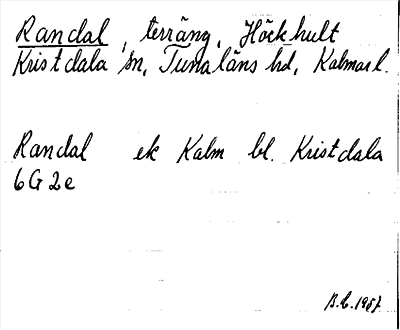 Randal, terräng, Höckhult
Kristdala sn, Tunaläns hd, Kalmar l.
Randal ek Kalm bl. Kristdala
6G2e